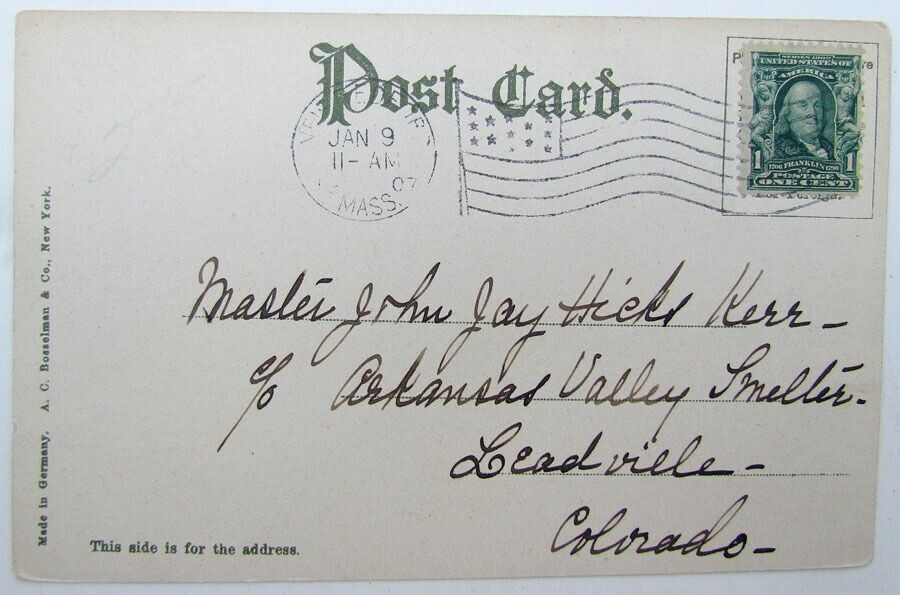 Post Card.
JAN 9
11-AM
07
MASS.
SERIES 1902
UNITED STATES OF
AMERICA
1706 FRANKLIN 1790
1 POSTAGE 1
ONE CENT
Master John Jay Hicks Kerr-
c/o Arkansas Valley Smelter-
Leadville-
Colorado-
This side is for the address.
Made in Germany. A. C. Bosselman & Co., New York.